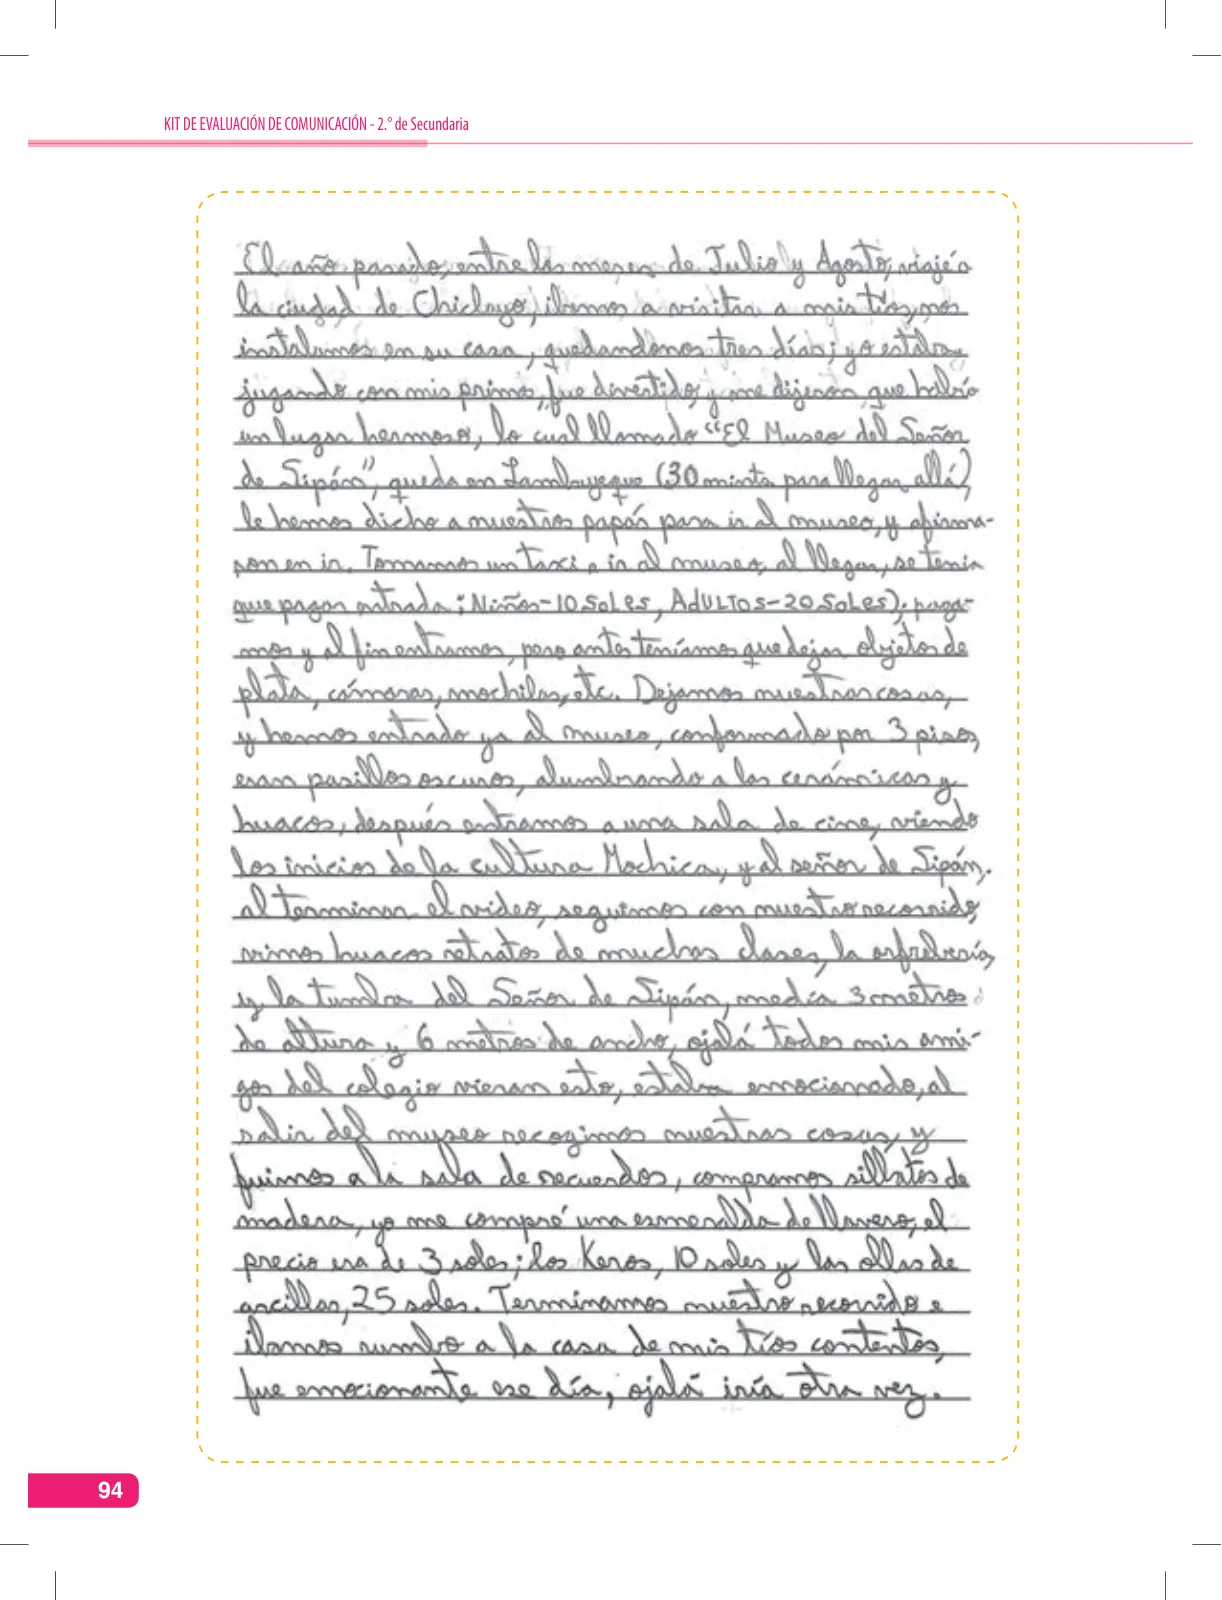 KIT DE EVALUACIÓN DE COMUNICACIÓN - 2.° de Secundaria
El año pasado, entre los meses de Julio y Agosto, viajé a
la ciudad de Chiclayo, ibamos a visitar a mis tíos, nos
instalamos en su casa, quedandonos tres días; yo estaba
jugando con mis primos, fue divertido, y me dijeron que había
un lugar hermoso, lo cual llamado “El Museo del Señor
de Sipán”, queda en Lambuyeque (30 minto para llegar allá)
le hemos dicho a nuestros papás para ir al museo, y afirma-
ron en ir. Tomamos un taxi e ir al museo, al llegar, se tenía
que pagar entrada: Niños-10 Soles, ADULTOS-20 SoLes); paga-
mos y al fin entramos, pero antes teníamos que dejar objetos de
plata, cámaras, mochilas, etc. Dejamos nuestras cosas,
y hemos entrado ya al museo, conformado por 3 pisos,
eran pasillos oscuros, alumbrando a las cerámicas y
huacos, después entramos a una sala de cine, viendo
los inicios de la cultura Mochica, y al señor de Sipán.
al terminar el video, seguimos con nuestro recorrido,
vimos huacos retratos de muchas clases, la orfrebería,
y la tumba del Señor de Sipán, medía 3 metros
de altura y 6 metros de ancho, ojalá todos mis ami-
gos del colegio vieran esto, estaba emocionado, al
salir del museo recogimos nuestras cosas, y
fuimos a la sala de recuerdos, compramos silbatos de
madera, yo me compré una esmeralda de llavero, el
precio era de 3 soles; los Keros, 10 soles y las ollas de
arcillas, 25 soles. Terminamos nuestro recorrido e
ibamos rumbo a la casa de mis tíos contentos,
fue emocionante ese día, ojalá iría otra vez.
94